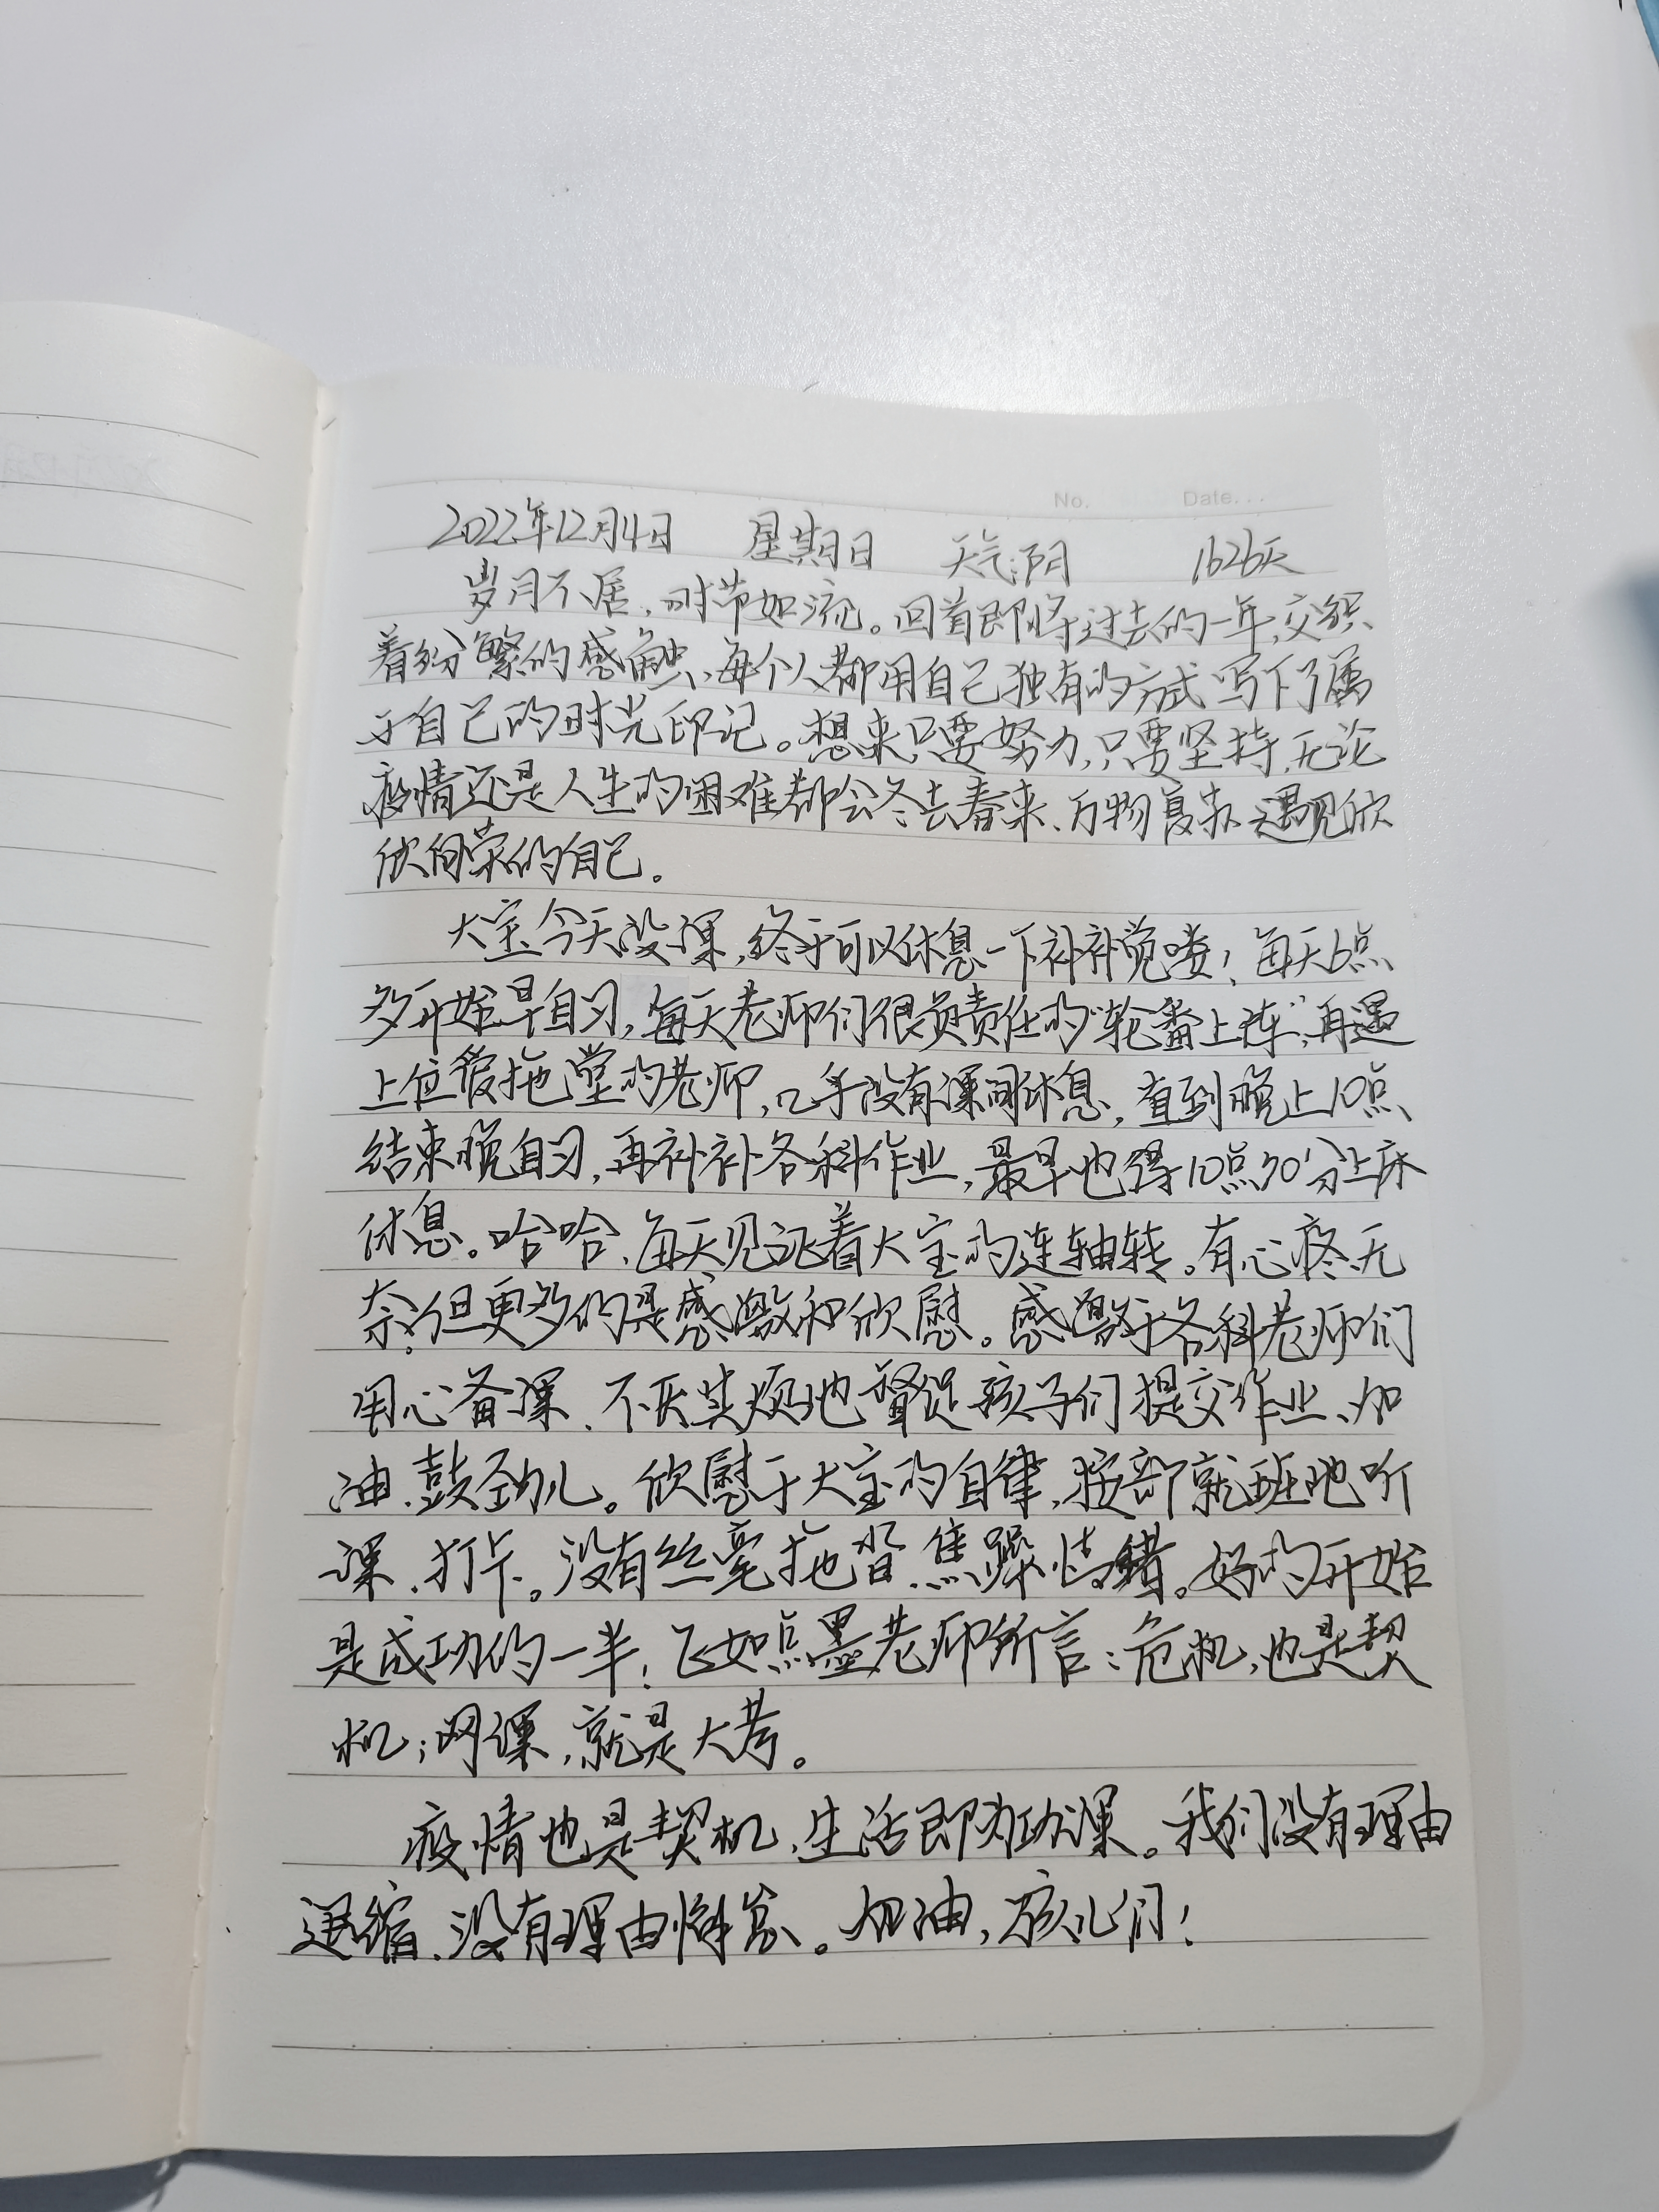 No.    Date...
2022年12月4日 星期日 天气:阴 1626天
岁月不居,时节如流。回首即将过去的一年,交织
着纷繁的感触、每个人都用自己独有的方式写下了属
于自己的时光印记。想来只要努力,只要坚持,无论
疫情还是人生的困难都会冬去春来、万物复苏、遇见欣
欣向荣的自己。
大宝今天没课,终于可以休息一下补补觉喽!每天6点
多开始早自习,每天老师们很负责任的“轮番上阵”,再遇
上位爱拖堂的老师,几乎没有课间休息,直到晚上10点
结束晚自习,再补补各科作业,最早也得10点30分上床
休息。哈哈、每天见证着大宝的连轴转。有心疼、无
奈,但更多的是感激和欣慰。感激于各科老师们
用心备课、不厌其烦地督促孩子们提交作业、加
油、鼓劲儿。欣慰于大宝的自律,按部就班地听
课、打卡。没有丝毫拖沓、焦躁情绪。好的开始
是成功的一半!正如点墨老师所言:危机,也是契
机;网课,就是大考。
疫情也是契机、生活即为功课。我们没有理由
退缩、没有理由懈怠。加油,孩儿们!